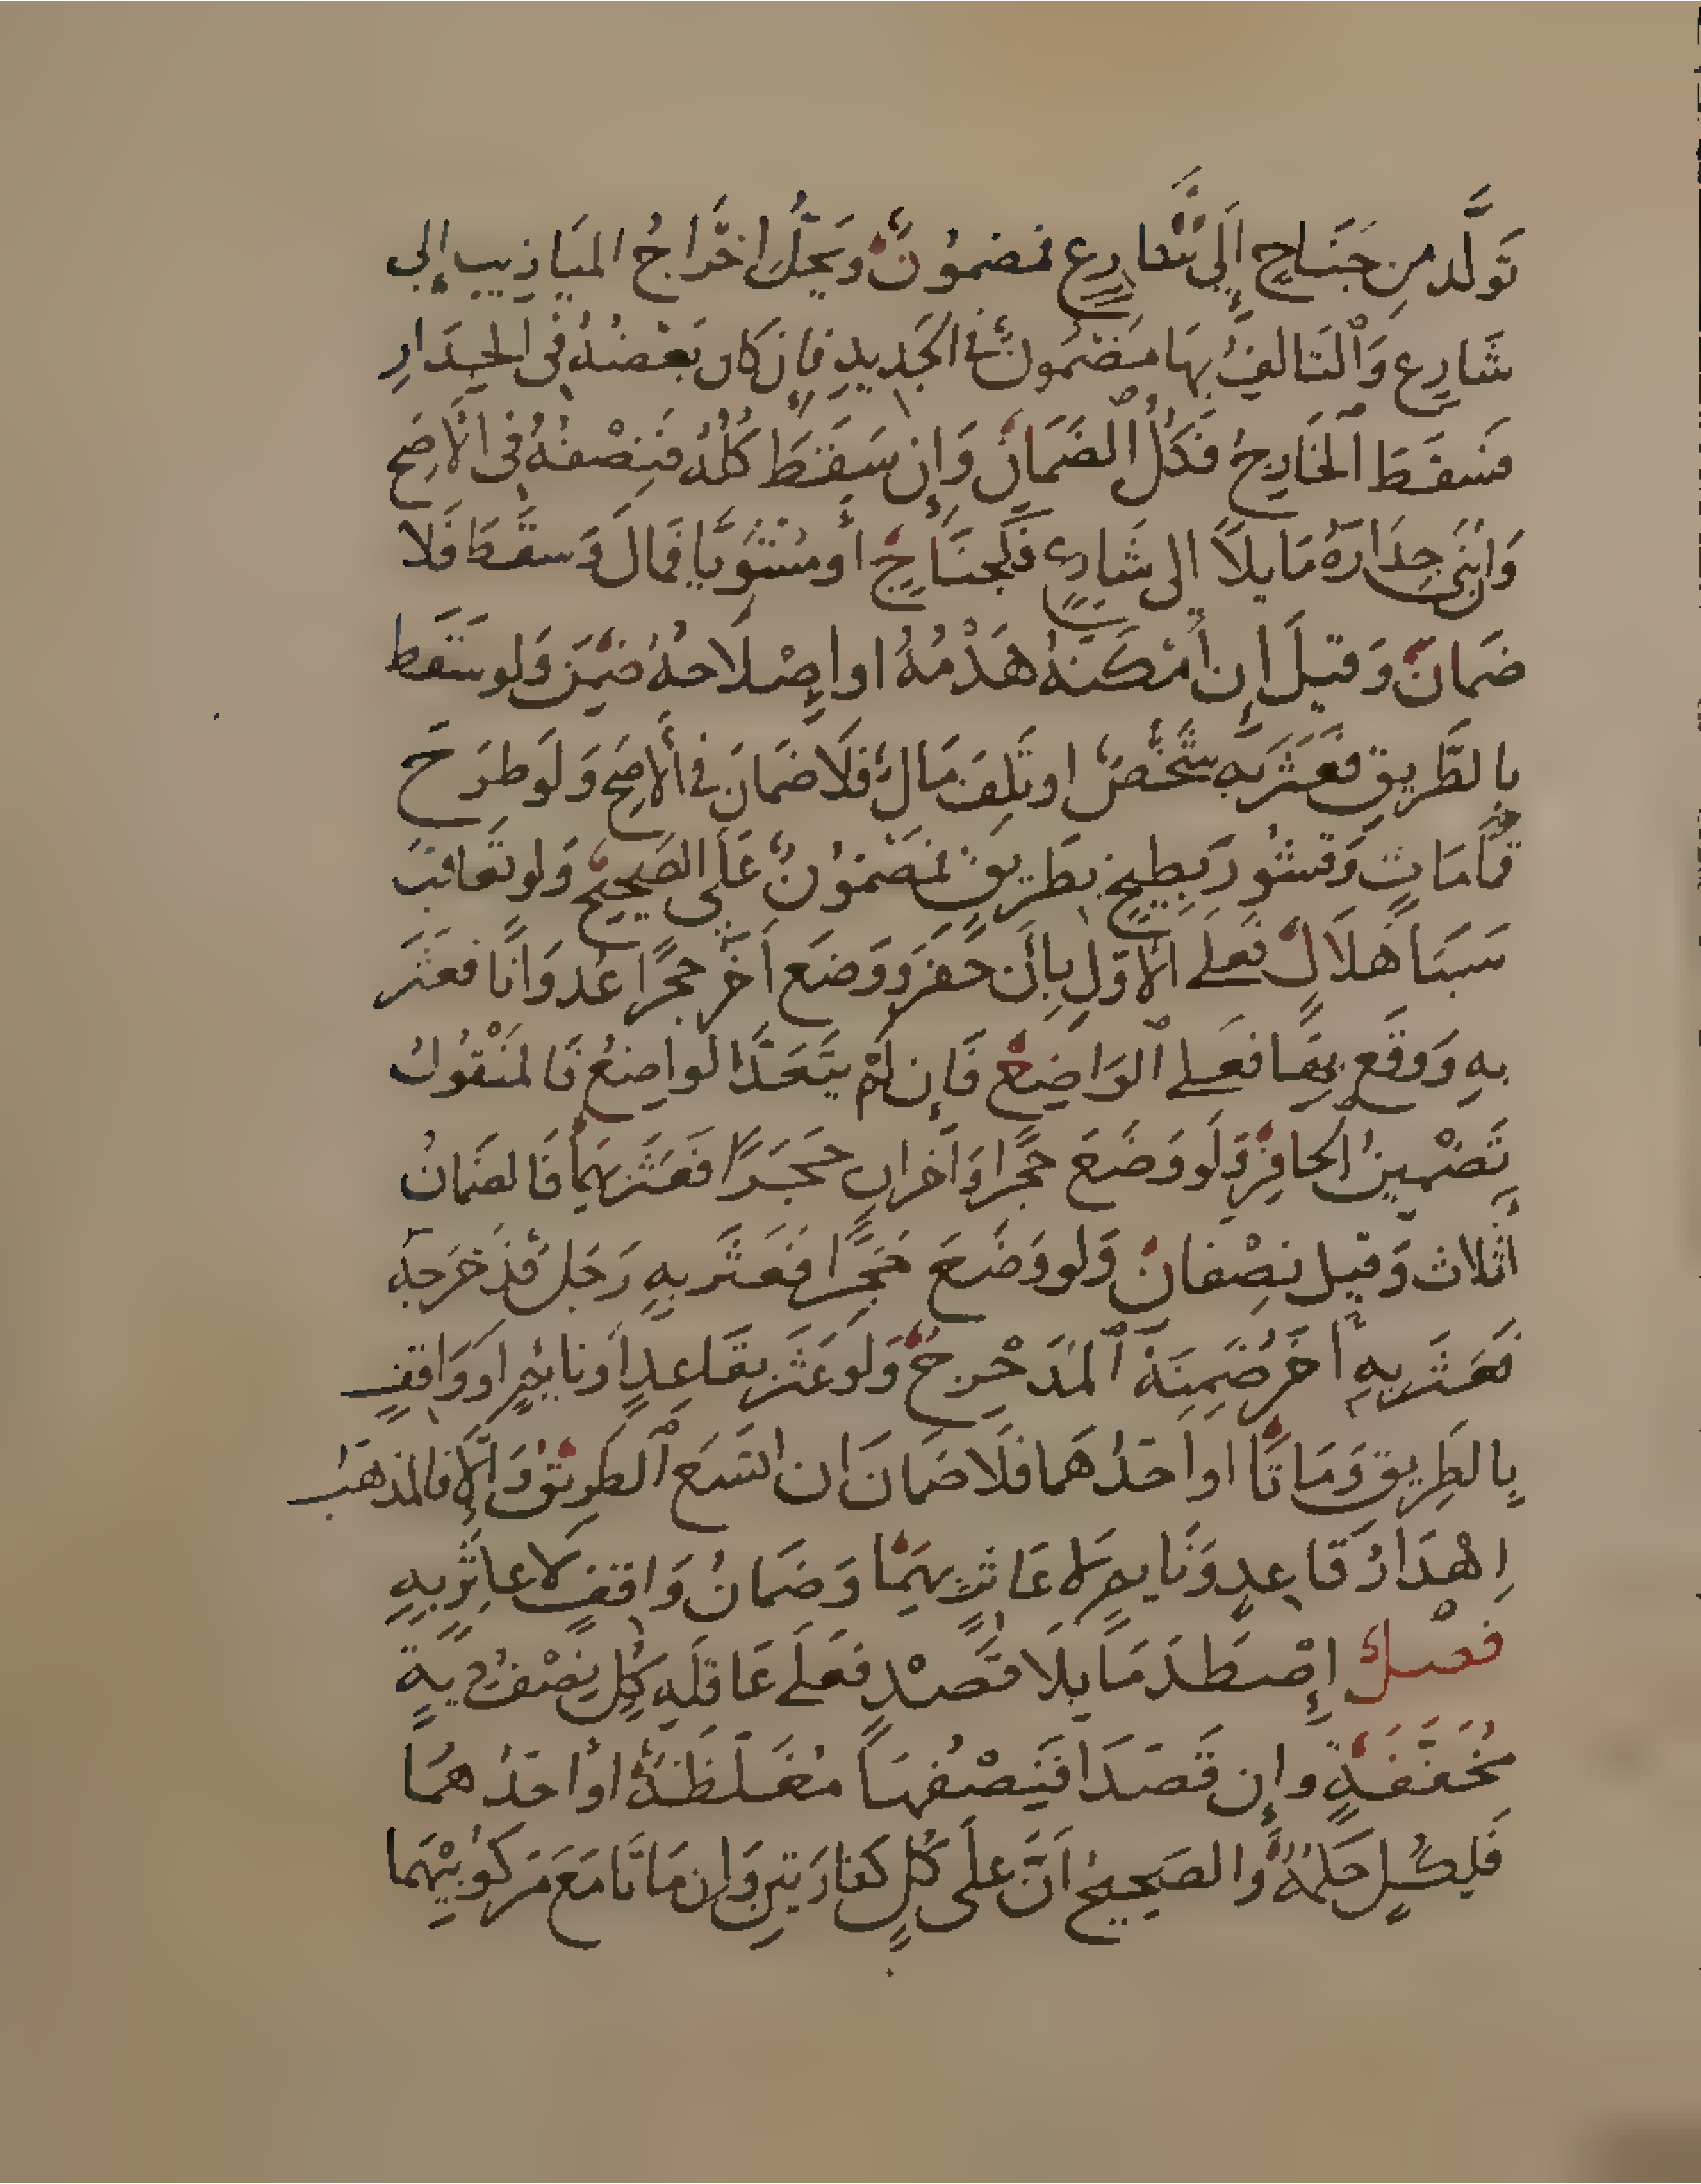 تَوَلَّد مِن جَنَاحٍ إِلَى شَّارِعٍ فمضمُونٌ وَيَحِلُّ إِخْرَاجُ المَيَازِيبِ إلى
شَارِعٍ وَٱلتَالِفُ بِهَا مَضْمُونٌ فِي الجَدِيدِ فَإِن كَان بَعْضُهُ فِى الجِدَارِ
فسَقَطَ ٱلخَارِجُ فَكُلُّ ٱلضَمَانِ وَإِن سَقَطَ كُلُّهُ فَنِصْفُهُ فِى الأَصَحِ
وَإِن بَنَى جِدَارَهُ مَايلاً الى شَارِعٍ فَكَجنَاحٍ أَو مُسْتَوِيًا فَمَالَ وَسقَطَ فَلا
ضَمانَ وَقيلَ إِن أَمْكَنَهُ هَدْمُهُ او إِصْلَاحهُ ضَمِنَ وَلَو سَقَط
بِالطَّرِيقِ فَعَثَرَ بِهِ شَخْصٌ او تَلِفَ مَالٌ فَلَا ضَمَانَ فِي الأَصَحِ وَلَو طَرَحَ
قُمَامَاتٍ وَقُشُورَ بِطِيخٍ بِطَرِيقٍ فمَضْمُونٌ عَلَى الصَحِيحِ وَلَو تَعَاقَبَ
سَبَبَا هَلَالٍ فَعلى الأَوّلِ بِأَن حَفَرَ وَوَضَعَ آخَرُ حجرًا عُدوَانًا فعثَرَ
بِهِ وَوَقَعَ بِهَا فَعَلى ٱلوَاضِعِ فَإِن لَمْ يَتَعَدَّ الوَاضِعُ فَالمَنْقُولُ
تَضْمِينُ الحافِرِ وَلَو وَضَعَ حجرًا وَآخَرانِ حَجَرًا فَعَثَرَ بِهِمَا فَالضَمانُ
أَثْلَاث وَقيل نِصْفانِ وَلو وَضَعَ حَجَرًا فَعَثَرَ بِهِ رَجُل فَدَحْرَجَهُ
فَعَثَرَ بِهِ آخَرُ ضَمِنَهُ ٱلمُدَحْرِجُ وَلو عَثَرَ بِقَاعِدٍ أَو نايِمٍ او وَاقِفٍ
بِالطَرِيقِ وَمَاتَا او أَحَدُهمَا فلَا ضَمَانَ ان اتَّسَعَ ٱلطَرِيقُ وَإِلَّا فالمذهَبُ
إِهْدَارُ قَاعِدٍ وَنَايمٍ لَا عَاثِرٍ بِهِمَا وَضَمَانُ وَاقِفٍ لَا عاثِرٍ بِهِ
فصْل إِصْطَدَمَا بِلَا قَصْدٍ فَعَلَى عَاقِلَةِ كُلٍّ نِصْفُ دِيَةٍ
مُخَفَّفَةٍ وإِن قَصَدَا فَنِصْفُهَا مُغَلَّظَةً او أَحَدُهمَا
فَلِكُلٍ حُكْمُهُ وَالصَحِيحُ أَنَّ عَلَى كُلٍّ كَفارَتَيْنِ وَإِن مَاتَا مَعَ مَركُوبَيْهِمَا